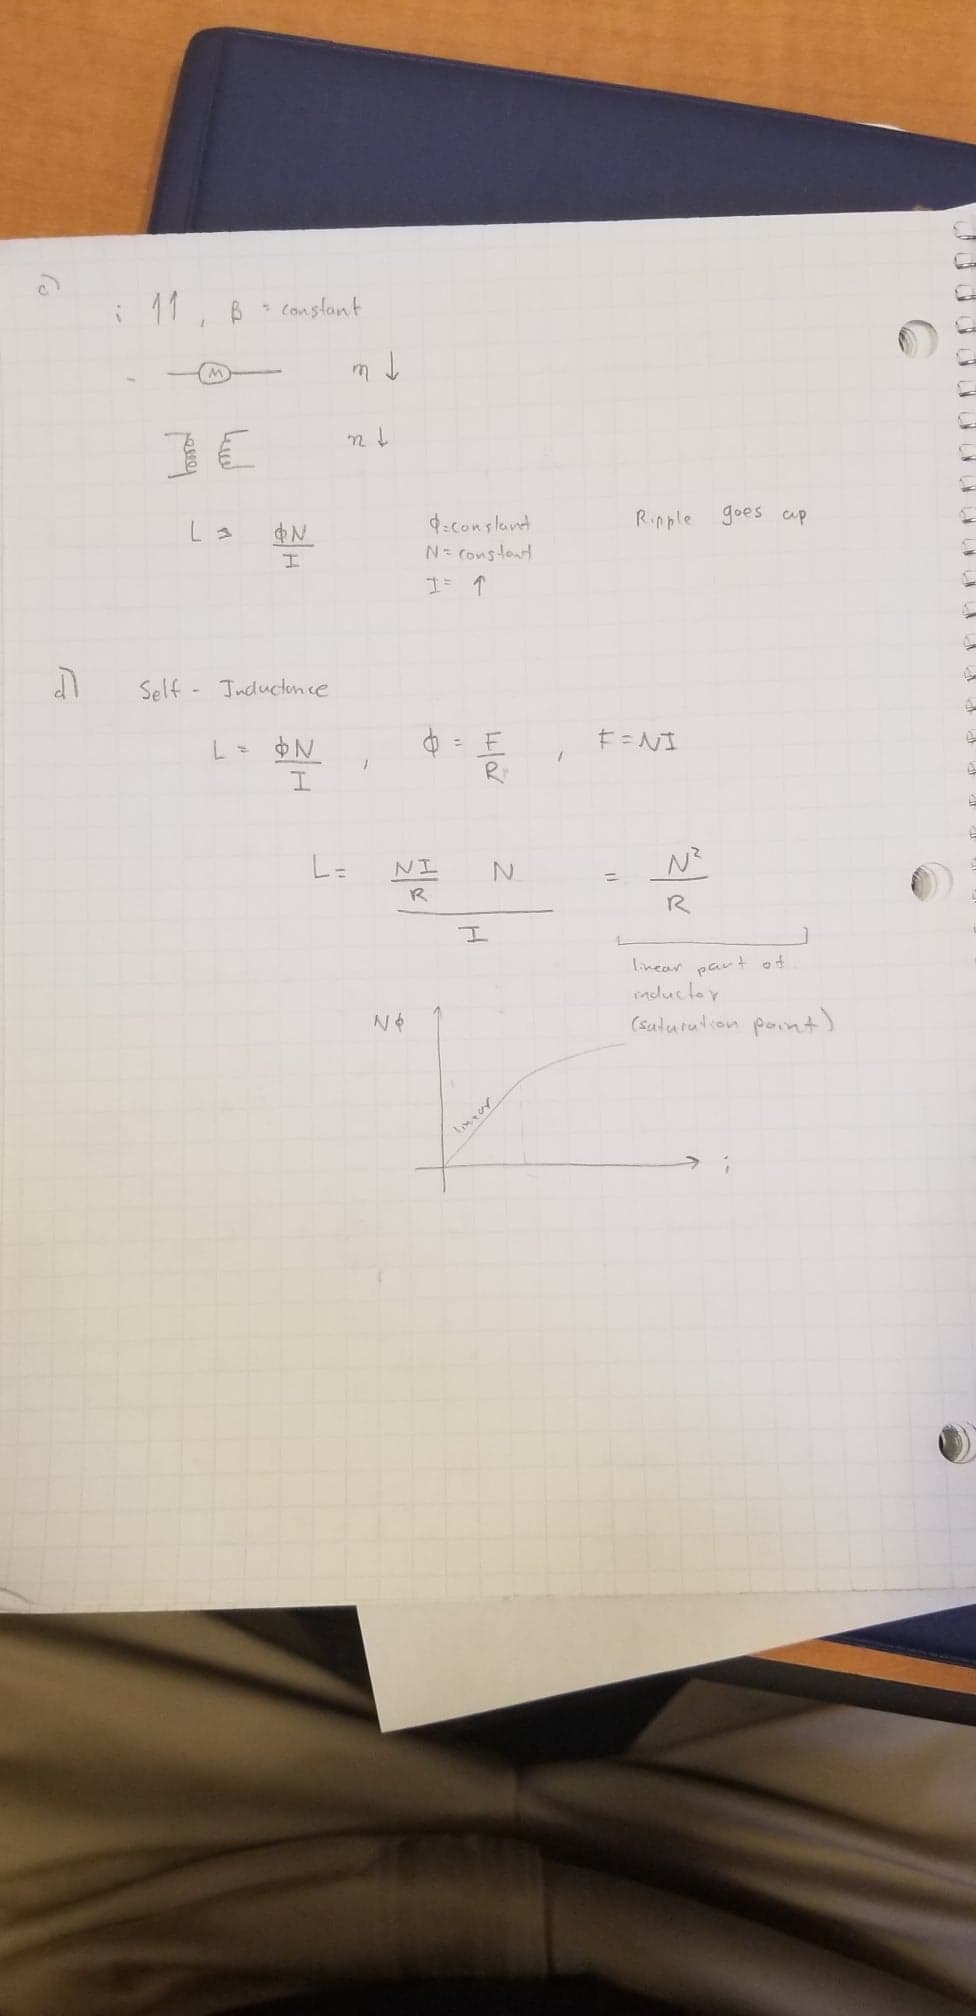 c)
i ↑↑, B = constant
M m ↓
n ↓
L = ΦN / I
Φ = constant
N = constant
I = ↑
Ripple goes up
d) Self - Inductance
L = ΦN / I , Φ = F / R , F = NI
L = NI/R N / I = N² / R
linear part of
inductor
(saturation point)
NΦ
linear
i